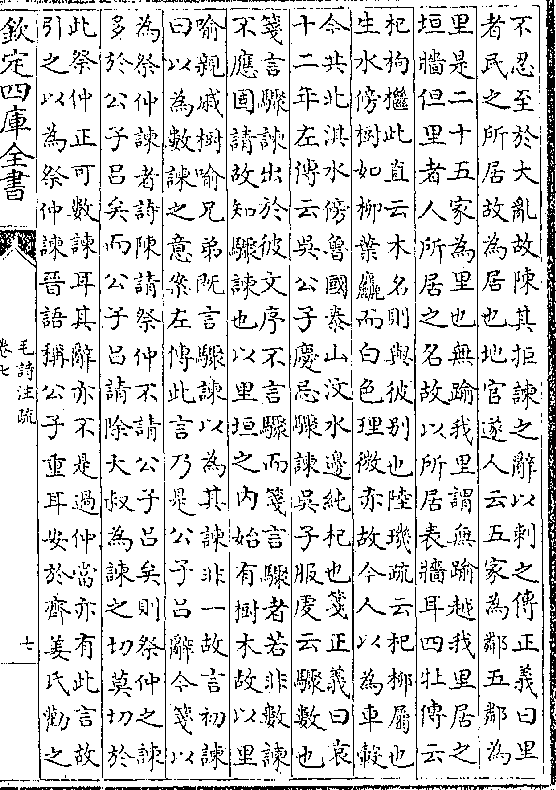 不忍至於大亂故陳其拒諫之辭以刺之傳正義曰里
者民之所居故為居也地官遂人云五家為鄰五鄰為
里是二十五家為里也無踰我里謂無踰越我里居之
垣牆但里者人所居之名故以所居表牆耳四牡傳云
杞枸檵此直云木名則與彼别也陸璣疏云杞柳屬也
生水傍樹如柳葉麤而白色理微赤故今人以為車轂
今共北淇水傍魯國泰山汶水邊純杞也箋正義曰哀
十二年左傳云吳公子慶忌驟諫吳子服虔云驟數也
箋言驟諫出於彼文序不言驟而箋言驟者若非數諫
不應固請故知驟諫也以里垣之內始有樹木故以里
喻親戚樹喻兄弟既言驟諫以為其諫非一故言初諫
曰以為數諫之意案左傳此言乃是公子呂辭今箋以
為祭仲諫者詩陳請祭仲不請公子呂矣則祭仲之諫
多於公子呂矣而公子呂請除大叔為諫之切莫切於
此祭仲正可數諫耳其辭亦不是過仲當亦有此言故
引之以為祭仲諫晉語稱公子重耳安於齊姜氏勸之
欽定四庫全書
毛詩注疏
卷七
七